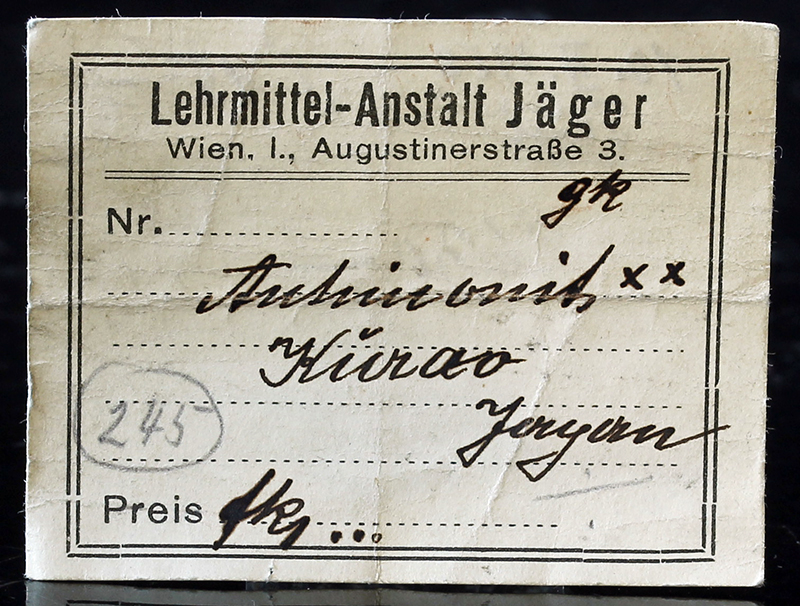 Lehrmittel-Anstalt Jäger
Wien, I., Augustinerstraße 3.
gk
Nr.
Antimonit xx
Kŭrao
Japan
245
Preis fkj ...